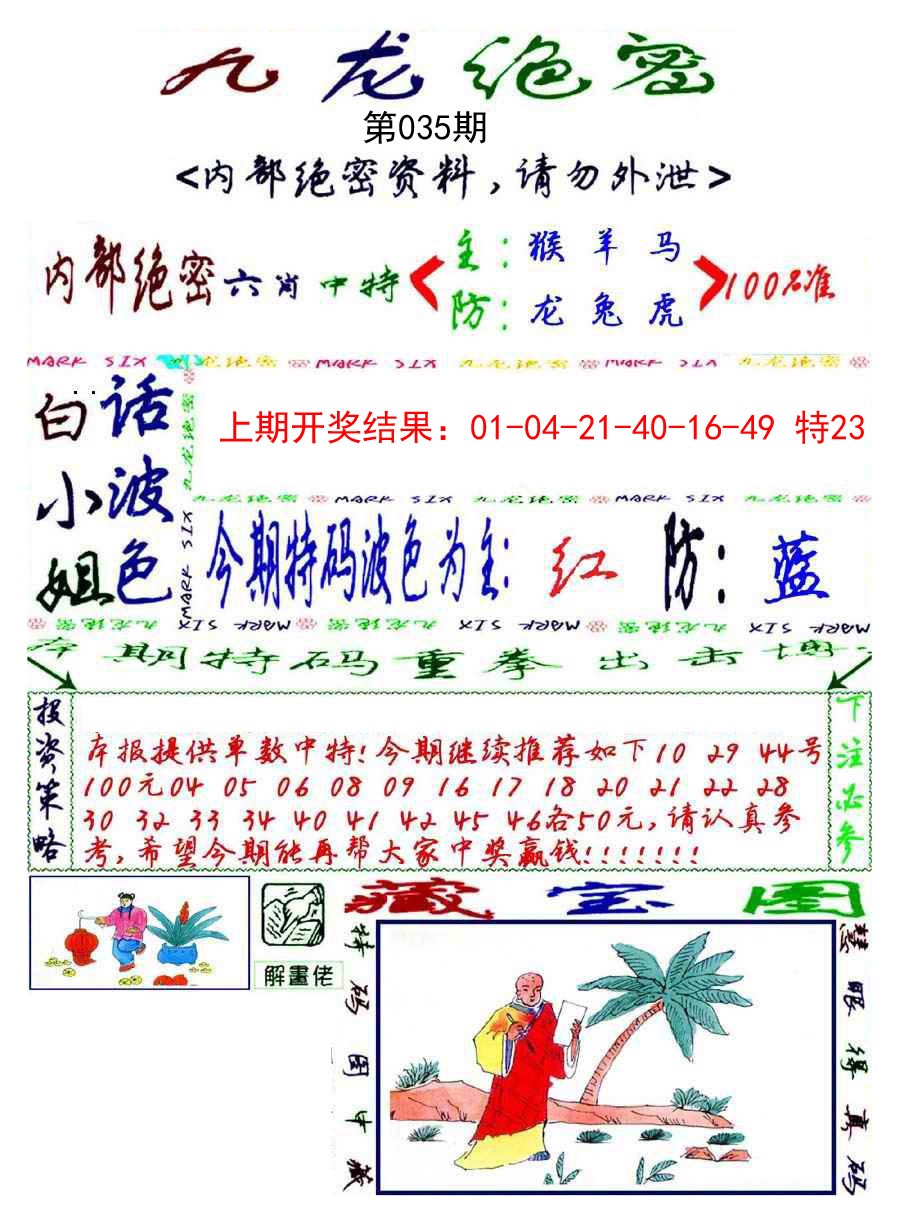 九龙绝密
第035期
<内部绝密资料,请勿外泄>
内部绝密六肖中特
主:猴羊马
防:龙兔虎
100%准
MARK SIX 九龙绝密 MARK SIX 九龙绝密 MARK SIX
白小姐
话波色
九龙绝密
MARK SIX
上期开奖结果：01-04-21-40-16-49 特23
九龙绝密 MARK SIX 九龙绝密 MARK SIX
今期特码波色为主:红 防:蓝
MARK SIX 九龙绝密 MARK SIX 九龙绝密 MARK SIX 九龙绝密 MARK SIX
本期特码重拳出击博
投资策略
本报提供单数中特!今期继续推荐如下10 29 44号
100元04 05 06 08 09 16 17 18 20 21 22 28
30 32 33 34 40 41 42 45 46各50元,请认真参
考,希望今期能再帮大家中奖赢钱!!!!!!!
下注必参
藏宝图
解畫佬
特码图中藏
慧眼得真码